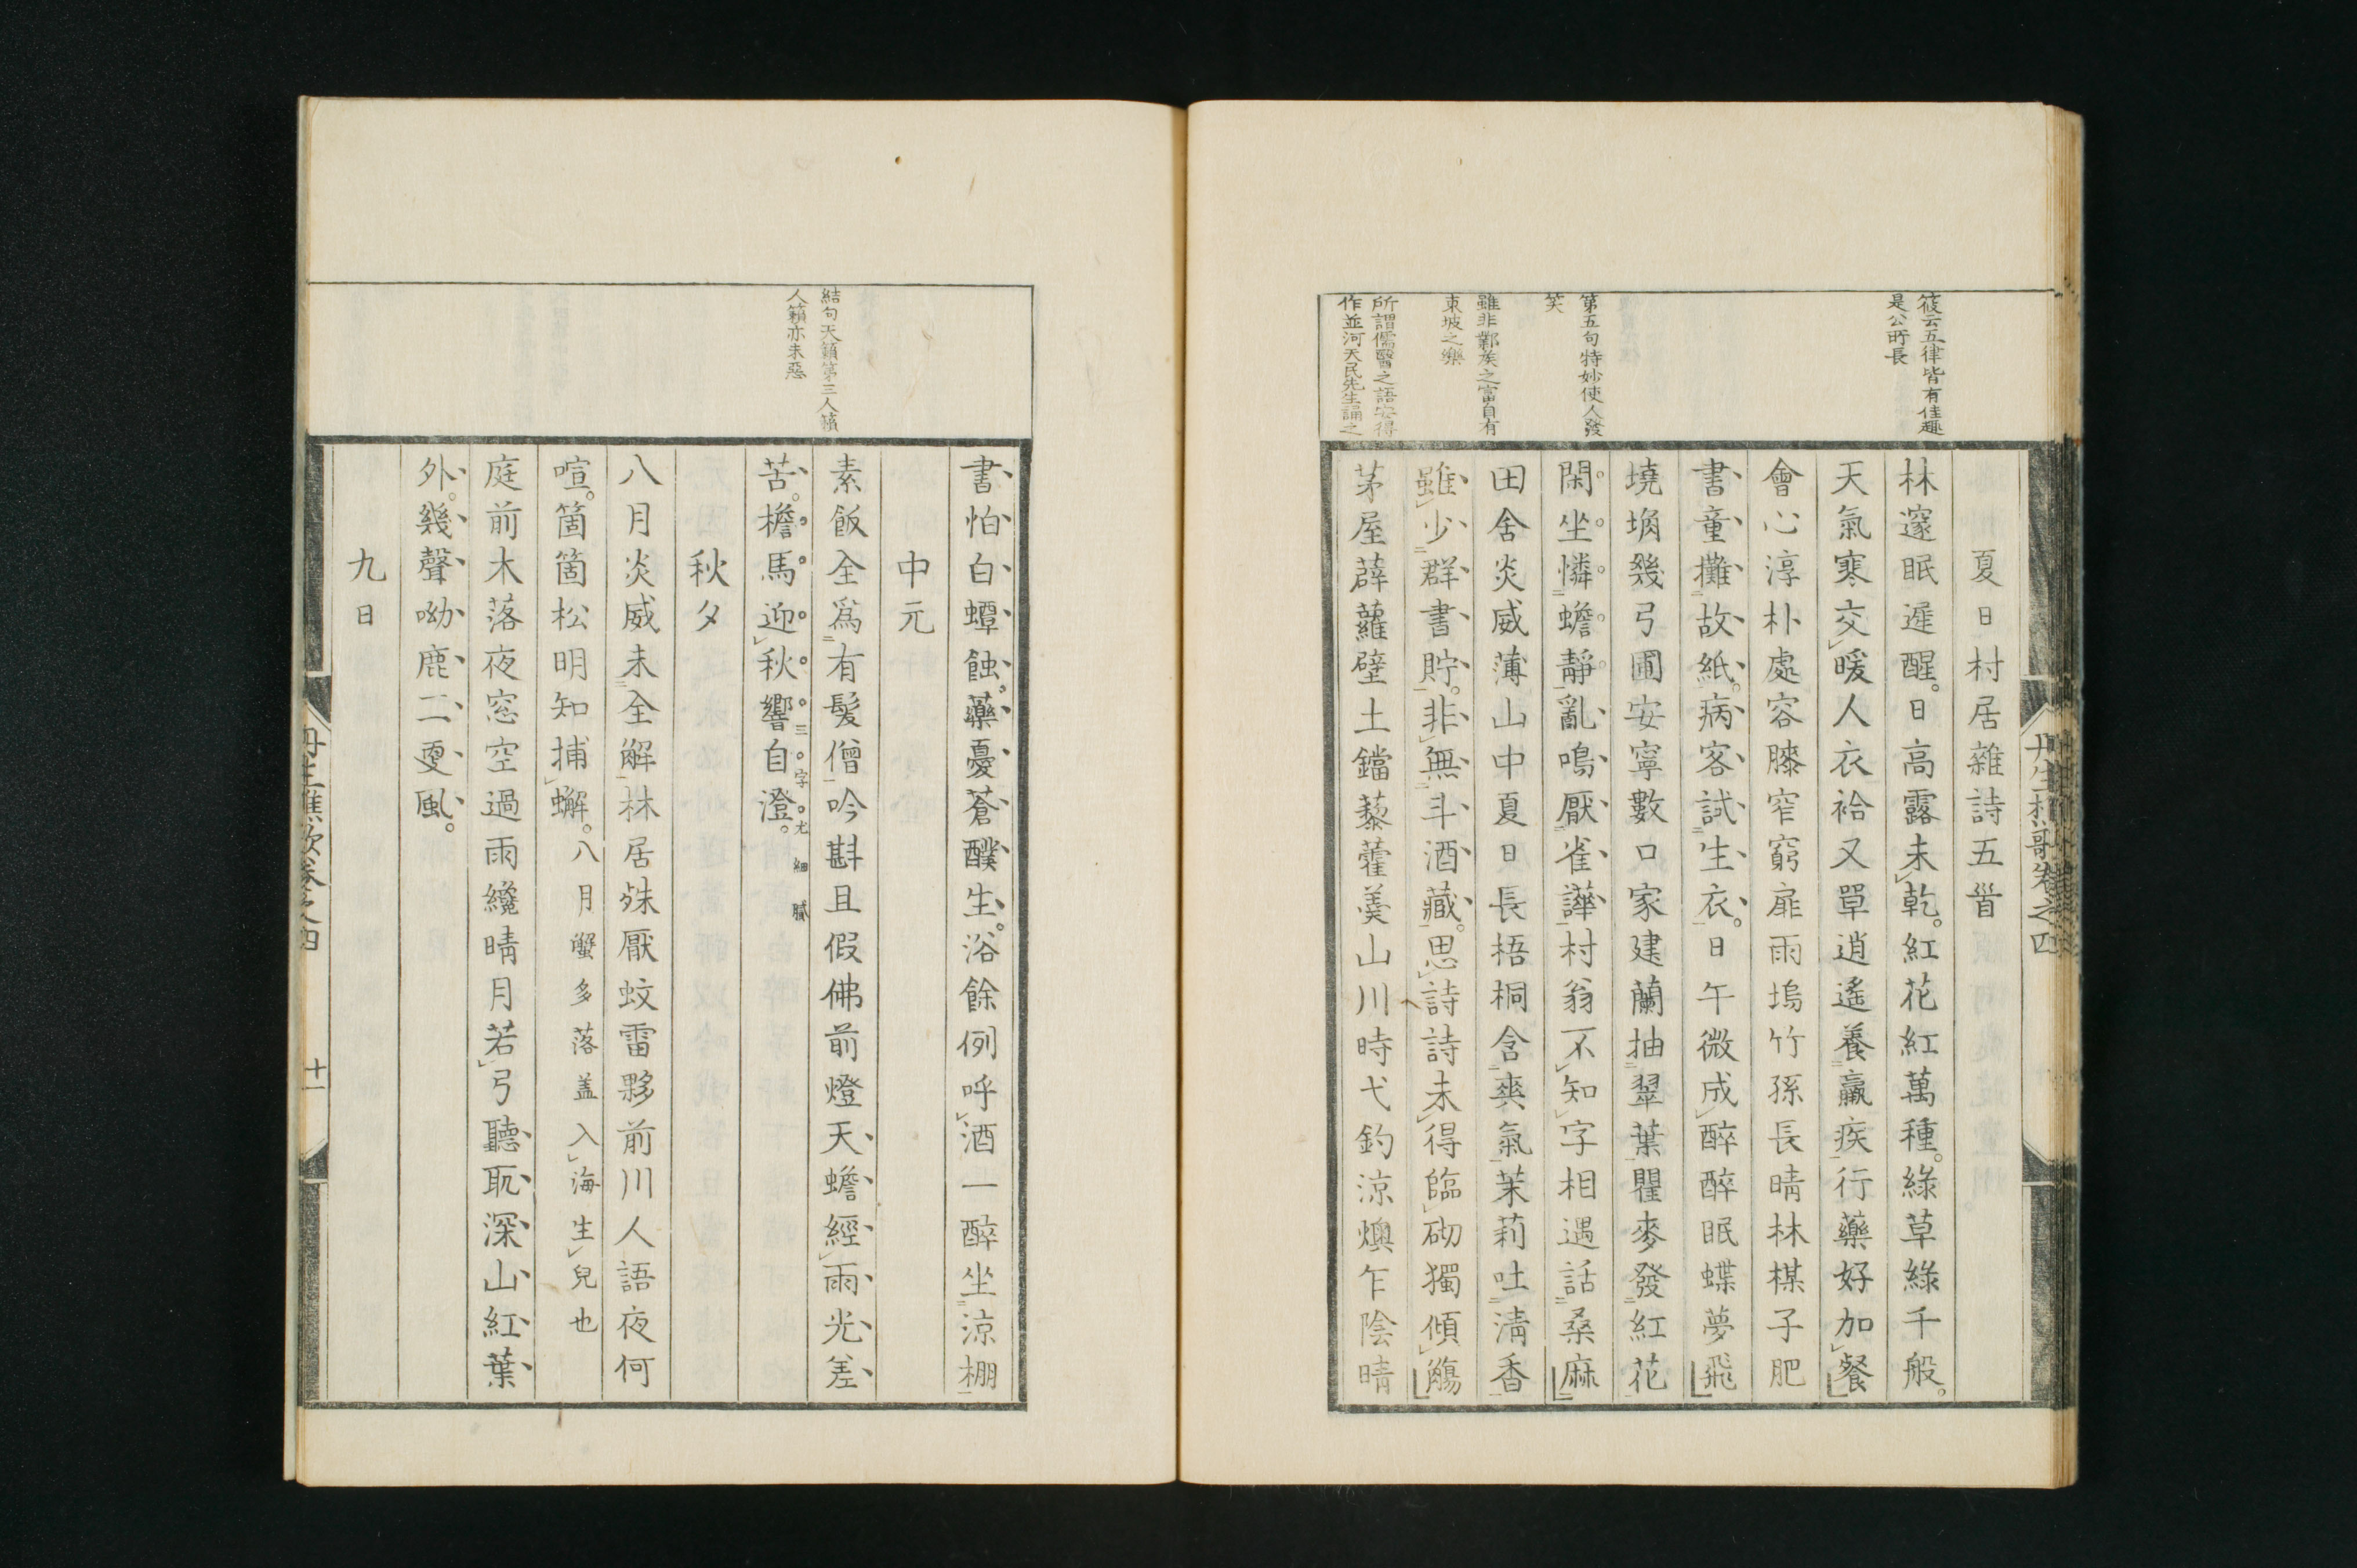 筱云五律皆有佳趣
是公所長
第五句特妙使人發
笑
雖非鄴矦之富自有
東坡之樂
所謂儒醫之語安得
作並河天民先生誦之
夏日村居雜詩五首
林邃眠遲醒。日高露未乾。紅花紅萬種。綠草綠千般。
天氣寒交暖人衣袷又單逍遙養羸疾行藥好加餐
會心淳朴處容膝窄窮扉雨塢竹孫長晴林楳子肥
書童攤故紙。病客試生衣。日午微成醉醉眠蝶夢飛
墝埆幾弓圃安寧數口家建蘭抽翠葉瞿麥發紅花
閑坐憐蟾靜亂鳴厭雀譁村翁不知字相遇話桑麻
田舍炎威薄山中夏日長梧桐含爽氣茉莉吐淸香
雖少群書貯。非無斗酒藏。思詩詩未得臨砌獨傾觴
茅屋薜蘿壁土鐺藜藿羹山川時弋釣涼燠乍陰晴
書怕白蟫蝕。藥憂蒼醭生。浴餘例呼酒一醉坐涼棚
結句天籟第三人籟
人籟亦未惡
中元
素飯全爲有髮僧吟斟且假佛前燈天蟾經雨光差
苦。檐馬迎秋響自澄。三字尤細膩
秋夕
八月炎威未全解林居殊厭蚊雷夥前川人語夜何
喧。箇箇松明知捕蠏。八月蟹多落盖入海生兒也
庭前木落夜窓空過雨纔晴月若弓聽耴深山紅葉
外。幾聲呦鹿二更風。
九日
十一